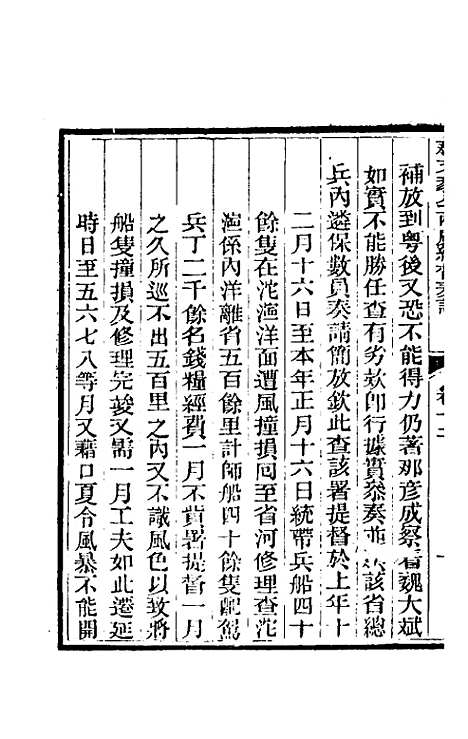 卷十二
補放到粵後又恐不能得力仍著那彥成察看魏大斌
如實不能勝任查有劣欵卽行據實叅奏並於該省總
兵內遴保數員奏請簡放欽此查該署提督於上年十
二月十六日至本年正月十六日統帶兵船四十
餘隻在沱𣿬洋面遭風撞損囘至省河修理查沱
𣿬係內洋離省五百餘里計師船四十餘隻配駕
兵丁二千餘名錢糧經費一月不貲署提督一月
之久所巡不出五百里之內又不識風色以致將
船隻撞損及修理完竣又需一月工夫如此遷延
時日至五六七八等月又藉口夏令風暴不能開